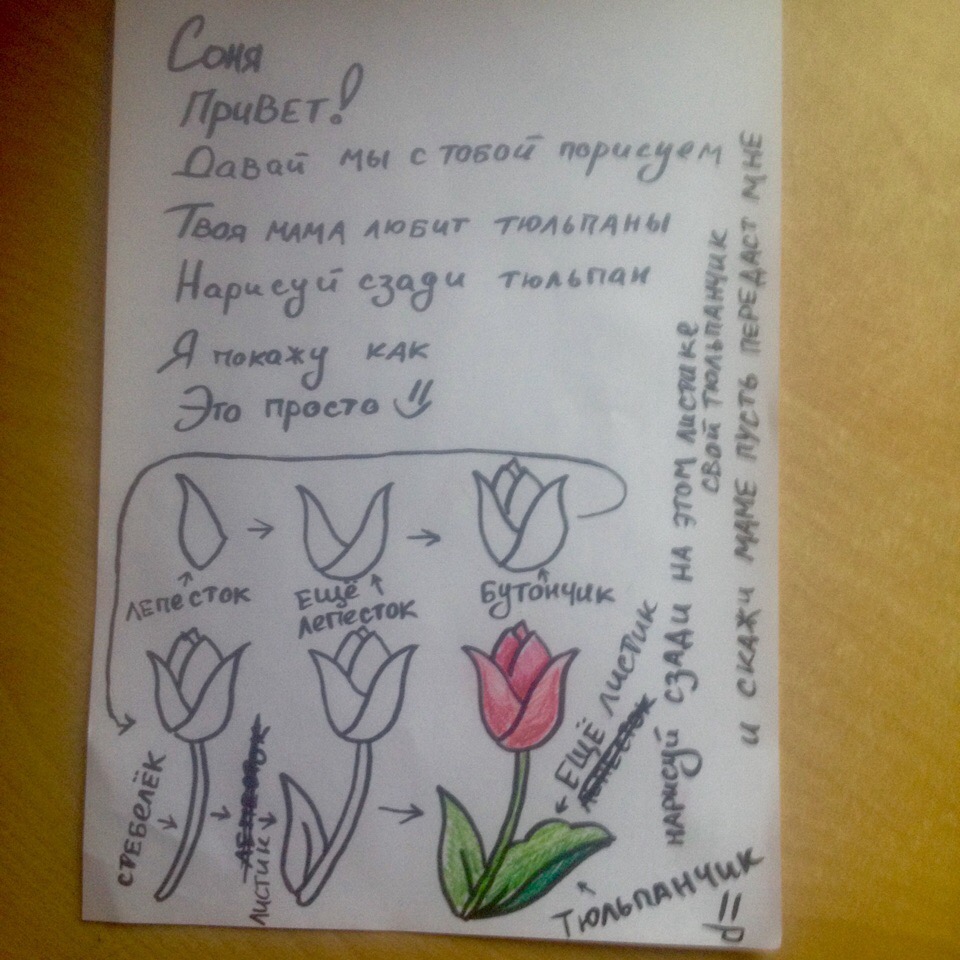 Соня
Привет!
Давай мы с тобой порисуем
Твоя мама любит тюльпаны
Нарисуй сзади тюльпан
Я покажу как
Это просто
лепесток
ещё
лепесток
бутончик
стебелёк
лепесток
листик
ещё листик
лепесток
тюльпанчик
нарисуй сзади на этом листике
свой тюльпанчик
и скажи маме пусть передаст мне